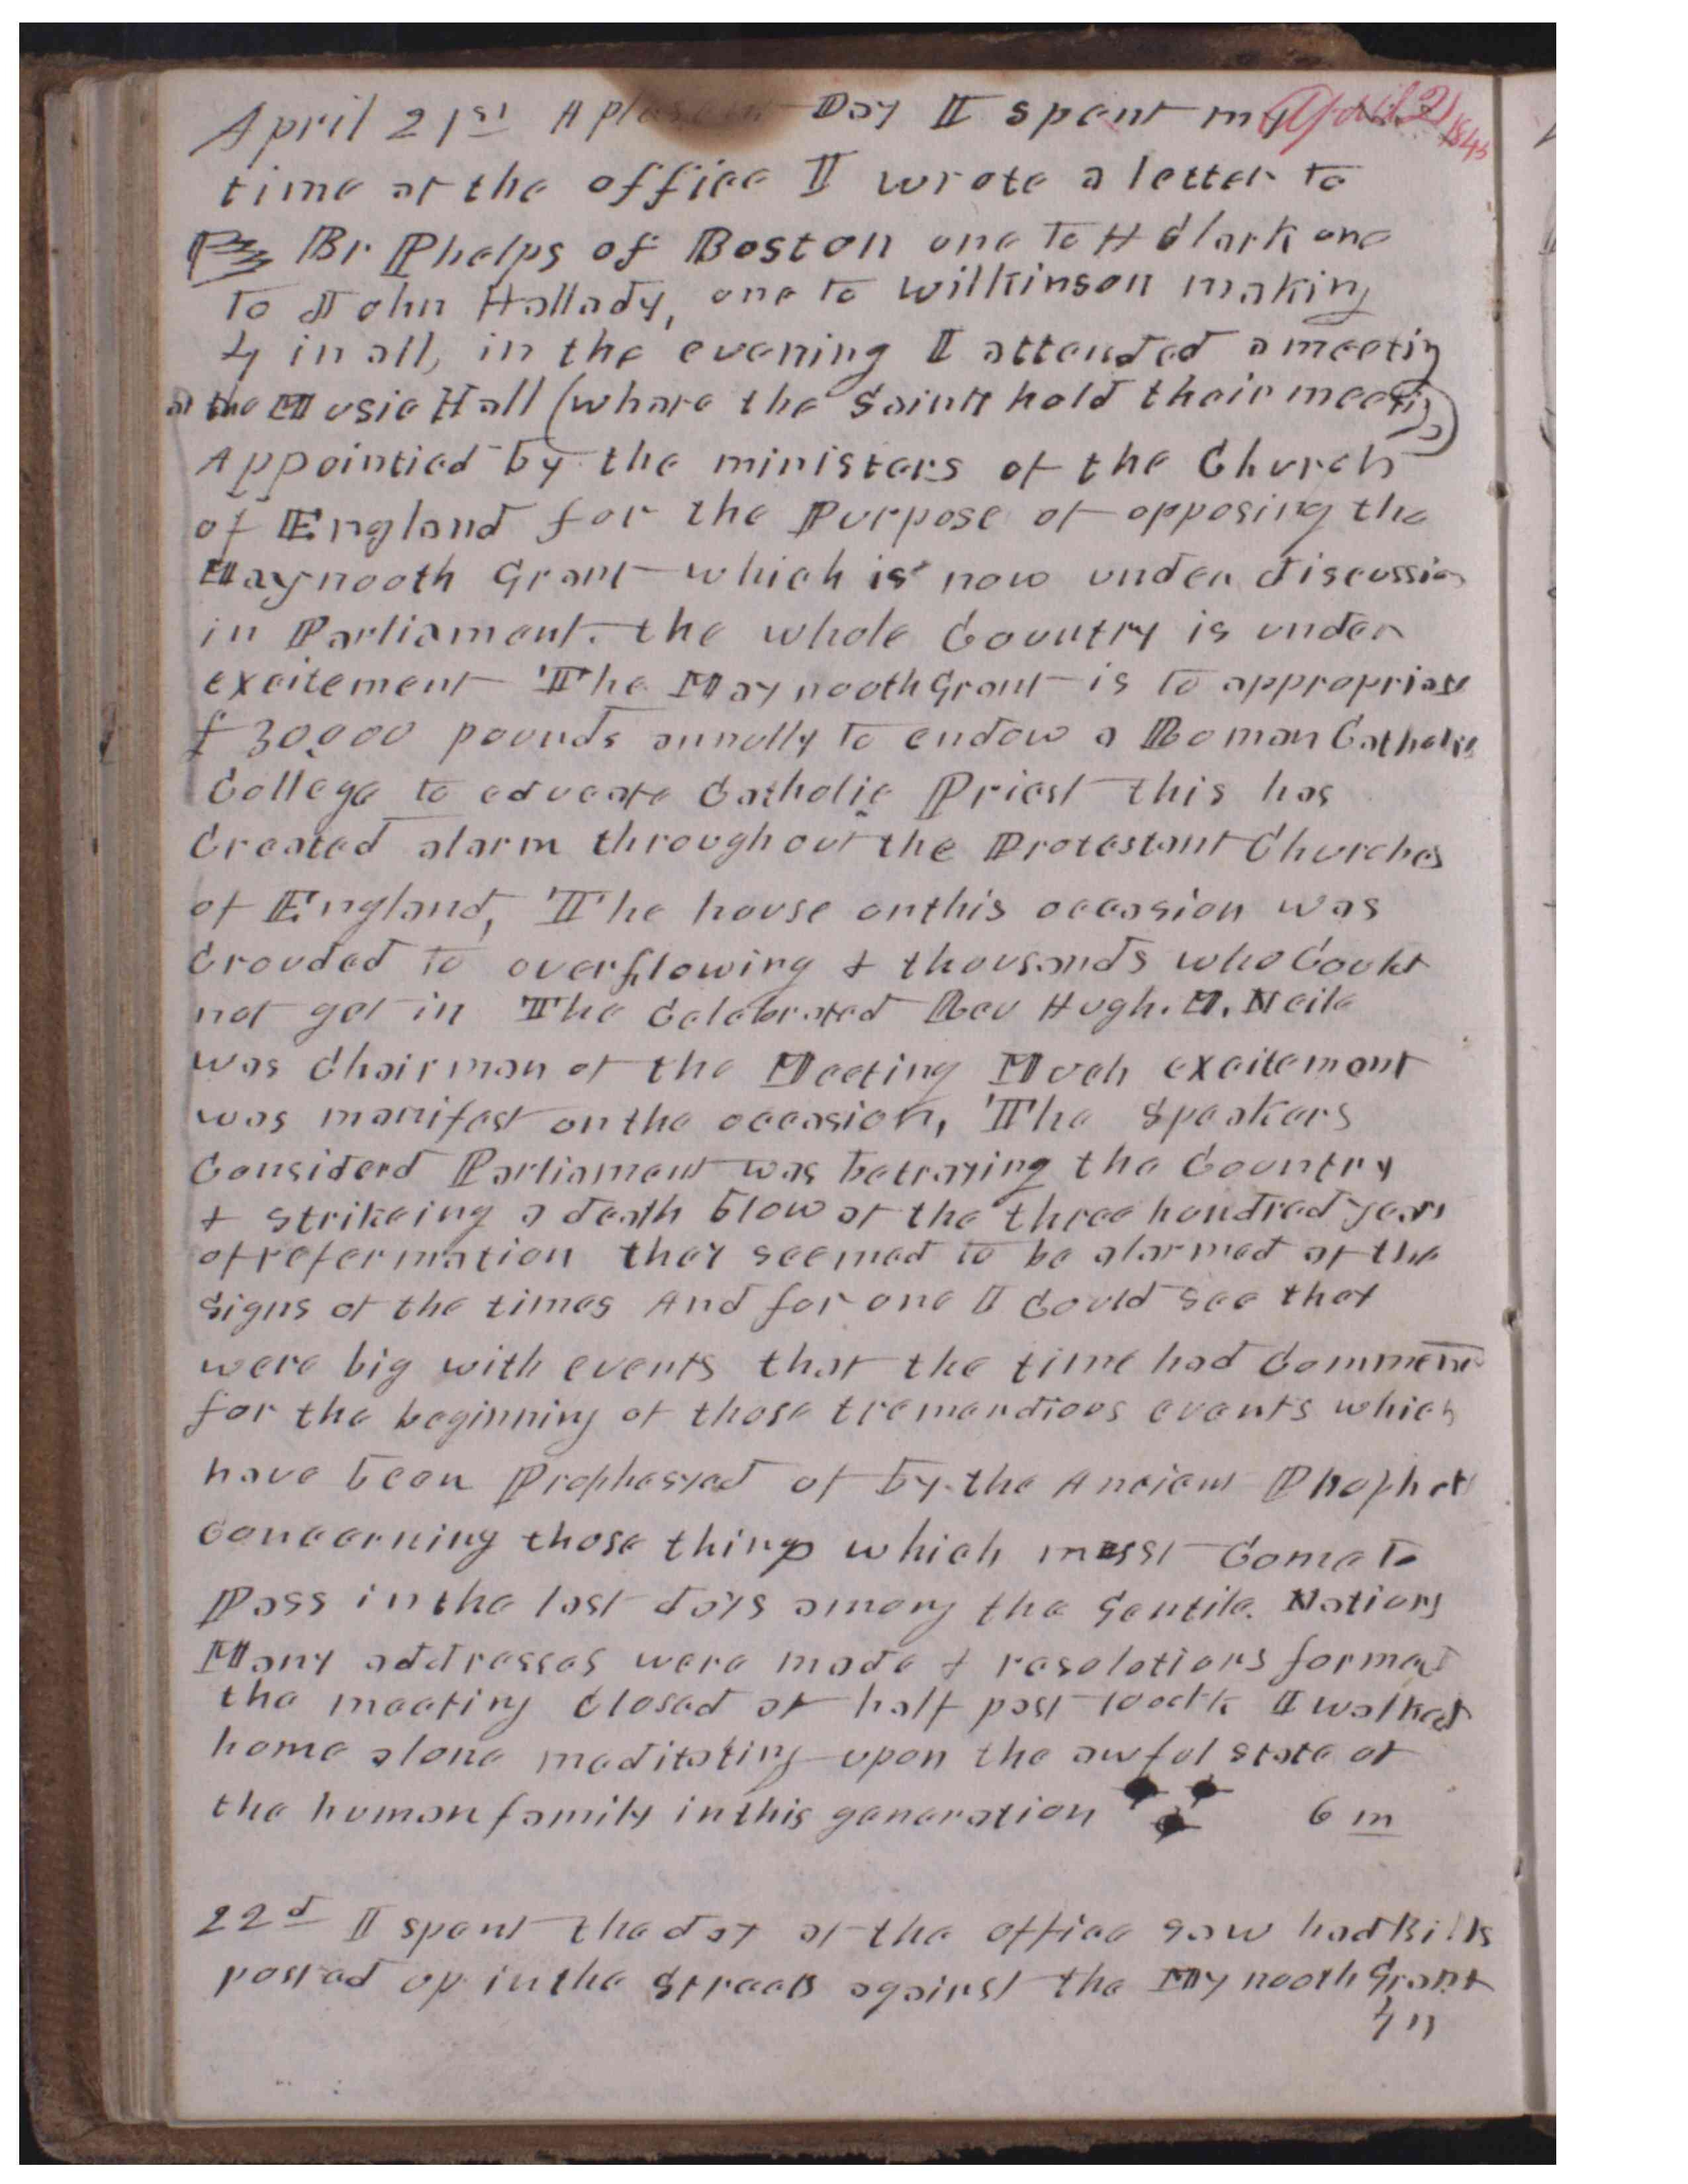 April 21st A pleasant Day I spent my
April 21 1845
time at the office I wrote a letter to
Br Phelps of Boston one to H Clark one
to John Hallady, one to wilkinson making
4 in all, in the evening I attended a meetig
at the Music Hall (whare the Saints hold their meetig)
Appointied by the ministers of the Church
of England for the Purpose of opposing the
Maynooth Grant which is now under discussion
in Parliament. the whole Country is under
excitement The Maynooth Grant is to appropriate
£30,000 pounds annully to endow a Roman Catholic
College to educate Catholic Priest this has
Created alarm throughout the Protestant Churches
of England, The house on this occasion was
Crouded to overflowing & thousands who Could
not get in The Celebrated Rev Hugh. M. Neile
was Chairman of the Meeting Much excitement
was manifest on the occasion, The Speakers
Considerd Parliament was betraying the Country
& strikeing a death blow at the three hundred years
of reformation they seemed to be alarmed at the
signs of the times And for one I Could see that
were big with events that the time had Commenc
for the beginning of those tremendious events which
have been Prophesyed of by the Ancient Prophet
concerning those things which must Come to
Pass in the last days among the Gentile Nations
Many addresses were made & resolutions formed
the meeting Closed at half past 10 oclk I walked
home alone meditating upon the awful state of
the human family in this generation 6 m
22d I spent the day at the office saw hadBills
posted up in the Streets against the Mynooth Grant
4 m